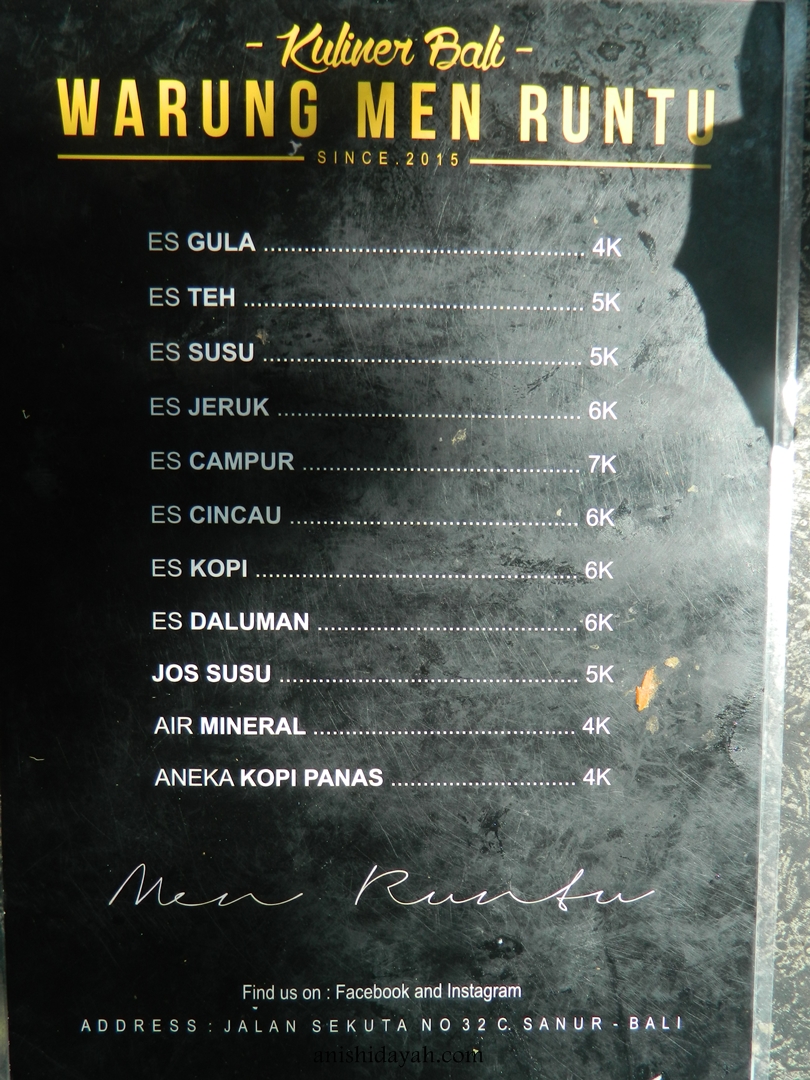 - Kuliner Bali -
WARUNG MEN RUNTU
SINCE.2015
ES GULA ................................................ 4K
ES TEH ................................................... 5K
ES SUSU ................................................ 5K
ES JERUK .............................................. 6K
ES CAMPUR .......................................... 7K
ES CINCAU ............................................ 6K
ES KOPI ................................................. 6K
ES DALUMAN ....................................... 6K
JOS SUSU ............................................. 5K
AIR MINERAL ........................................ 4K
ANEKA KOPI PANAS ............................ 4K
Men Runtu
Find us on : Facebook and Instagram
ADDRESS : JALAN SEKUTA NO 32 C. SANUR - BALI
anishidayah.com